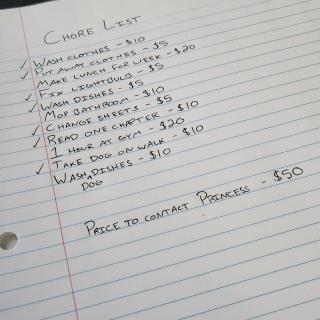 CHORE LIST
✓ WASH CLOTHES - $10
✓ PUT AWAY CLOTHES - $5
MAKE LUNCH FOR WEEK - $20
✓ FIX LIGHTBULB - $5
✓ WASH DISHES - $5
MOP BATHROOM - $10
✓ CHANGE SHEETS - $5
✓ READ ONE CHAPTER - $10
1 HOUR AT GYM - $20
✓ TAKE DOG ON WALK - $10
WASH DISHES - $10
DOG
PRICE TO CONTACT PRINCESS - $50